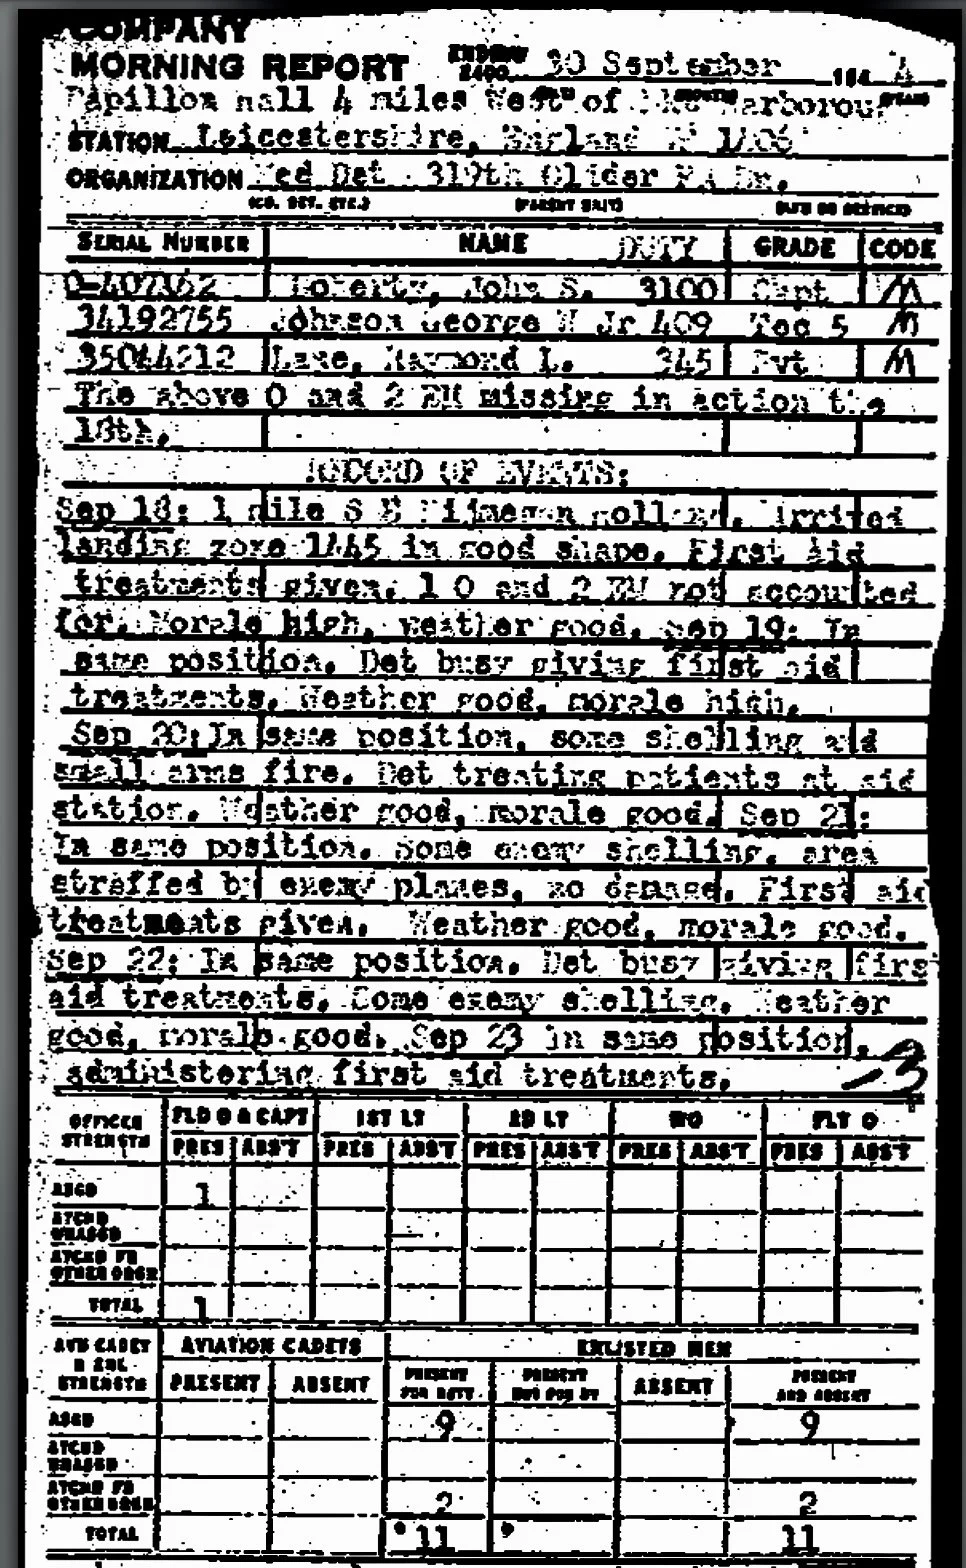 COMPANY
MORNING REPORT ENDING 2400 30 September 194 4
Papillon hall 4 miles West of Harborough
STATION Leicestershire, England
ORGANIZATION Med Det 319th Glider FA Bn.
(CO. DET. ETC.) (PARENT UNIT) (ARM OR SERVICE)
SERIAL NUMBER NAME DUTY GRADE CODE
O-407362 John S. 3100 Capt M
34192755 Johnson George W Jr 409 Tec 5 M
35044212 Lane, Raymond L. 345 Pvt M
The above O and 2 EM missing in action the
18th.
RECORD OF EVENTS:
Sep 18: 1 mile S E Nijmegen Holland. Arrived
landing zone 1445 in good shape. First Aid
treatments given. 1 O and 2 EM not accounted
for. Morale high, weather good. Sep 19: In
same position. Det busy giving first aid
treatments. Weather good, morale high.
Sep 20: In same position, some shelling and
small arms fire. Det treating patients at aid
station. Weather good, morale good. Sep 21:
In same position. Some enemy shelling, area
straffed by enemy planes, no damage. First aid
treatments given. Weather good, morale good.
Sep 22: In same position. Det busy giving first
aid treatments. Some enemy shelling. Weather
good, morale good. Sep 23 in same position,
administering first aid treatments. -3
OFFICER STRENGTH FLD O & CAPT 1ST LT 2D LT WO FLT O
PRES ABS'T PRES ABS'T PRES ABS'T PRES ABS'T PRES ABS'T
ASGD 1
ATCHD UNASGD
ATCHD FR OTHER ORGN
TOTAL 1
AVN CADET & ENL STRENGTH AVIATION CADETS ENLISTED MEN
PRESENT ABSENT PRESENT FOR DUTY PRESENT NOT FOR DY ABSENT PRESENT AND ABSENT
ASGD 9 9
ATCHD UNASGD
ATCHD FR OTHER ORGN 2 2
TOTAL 11 11